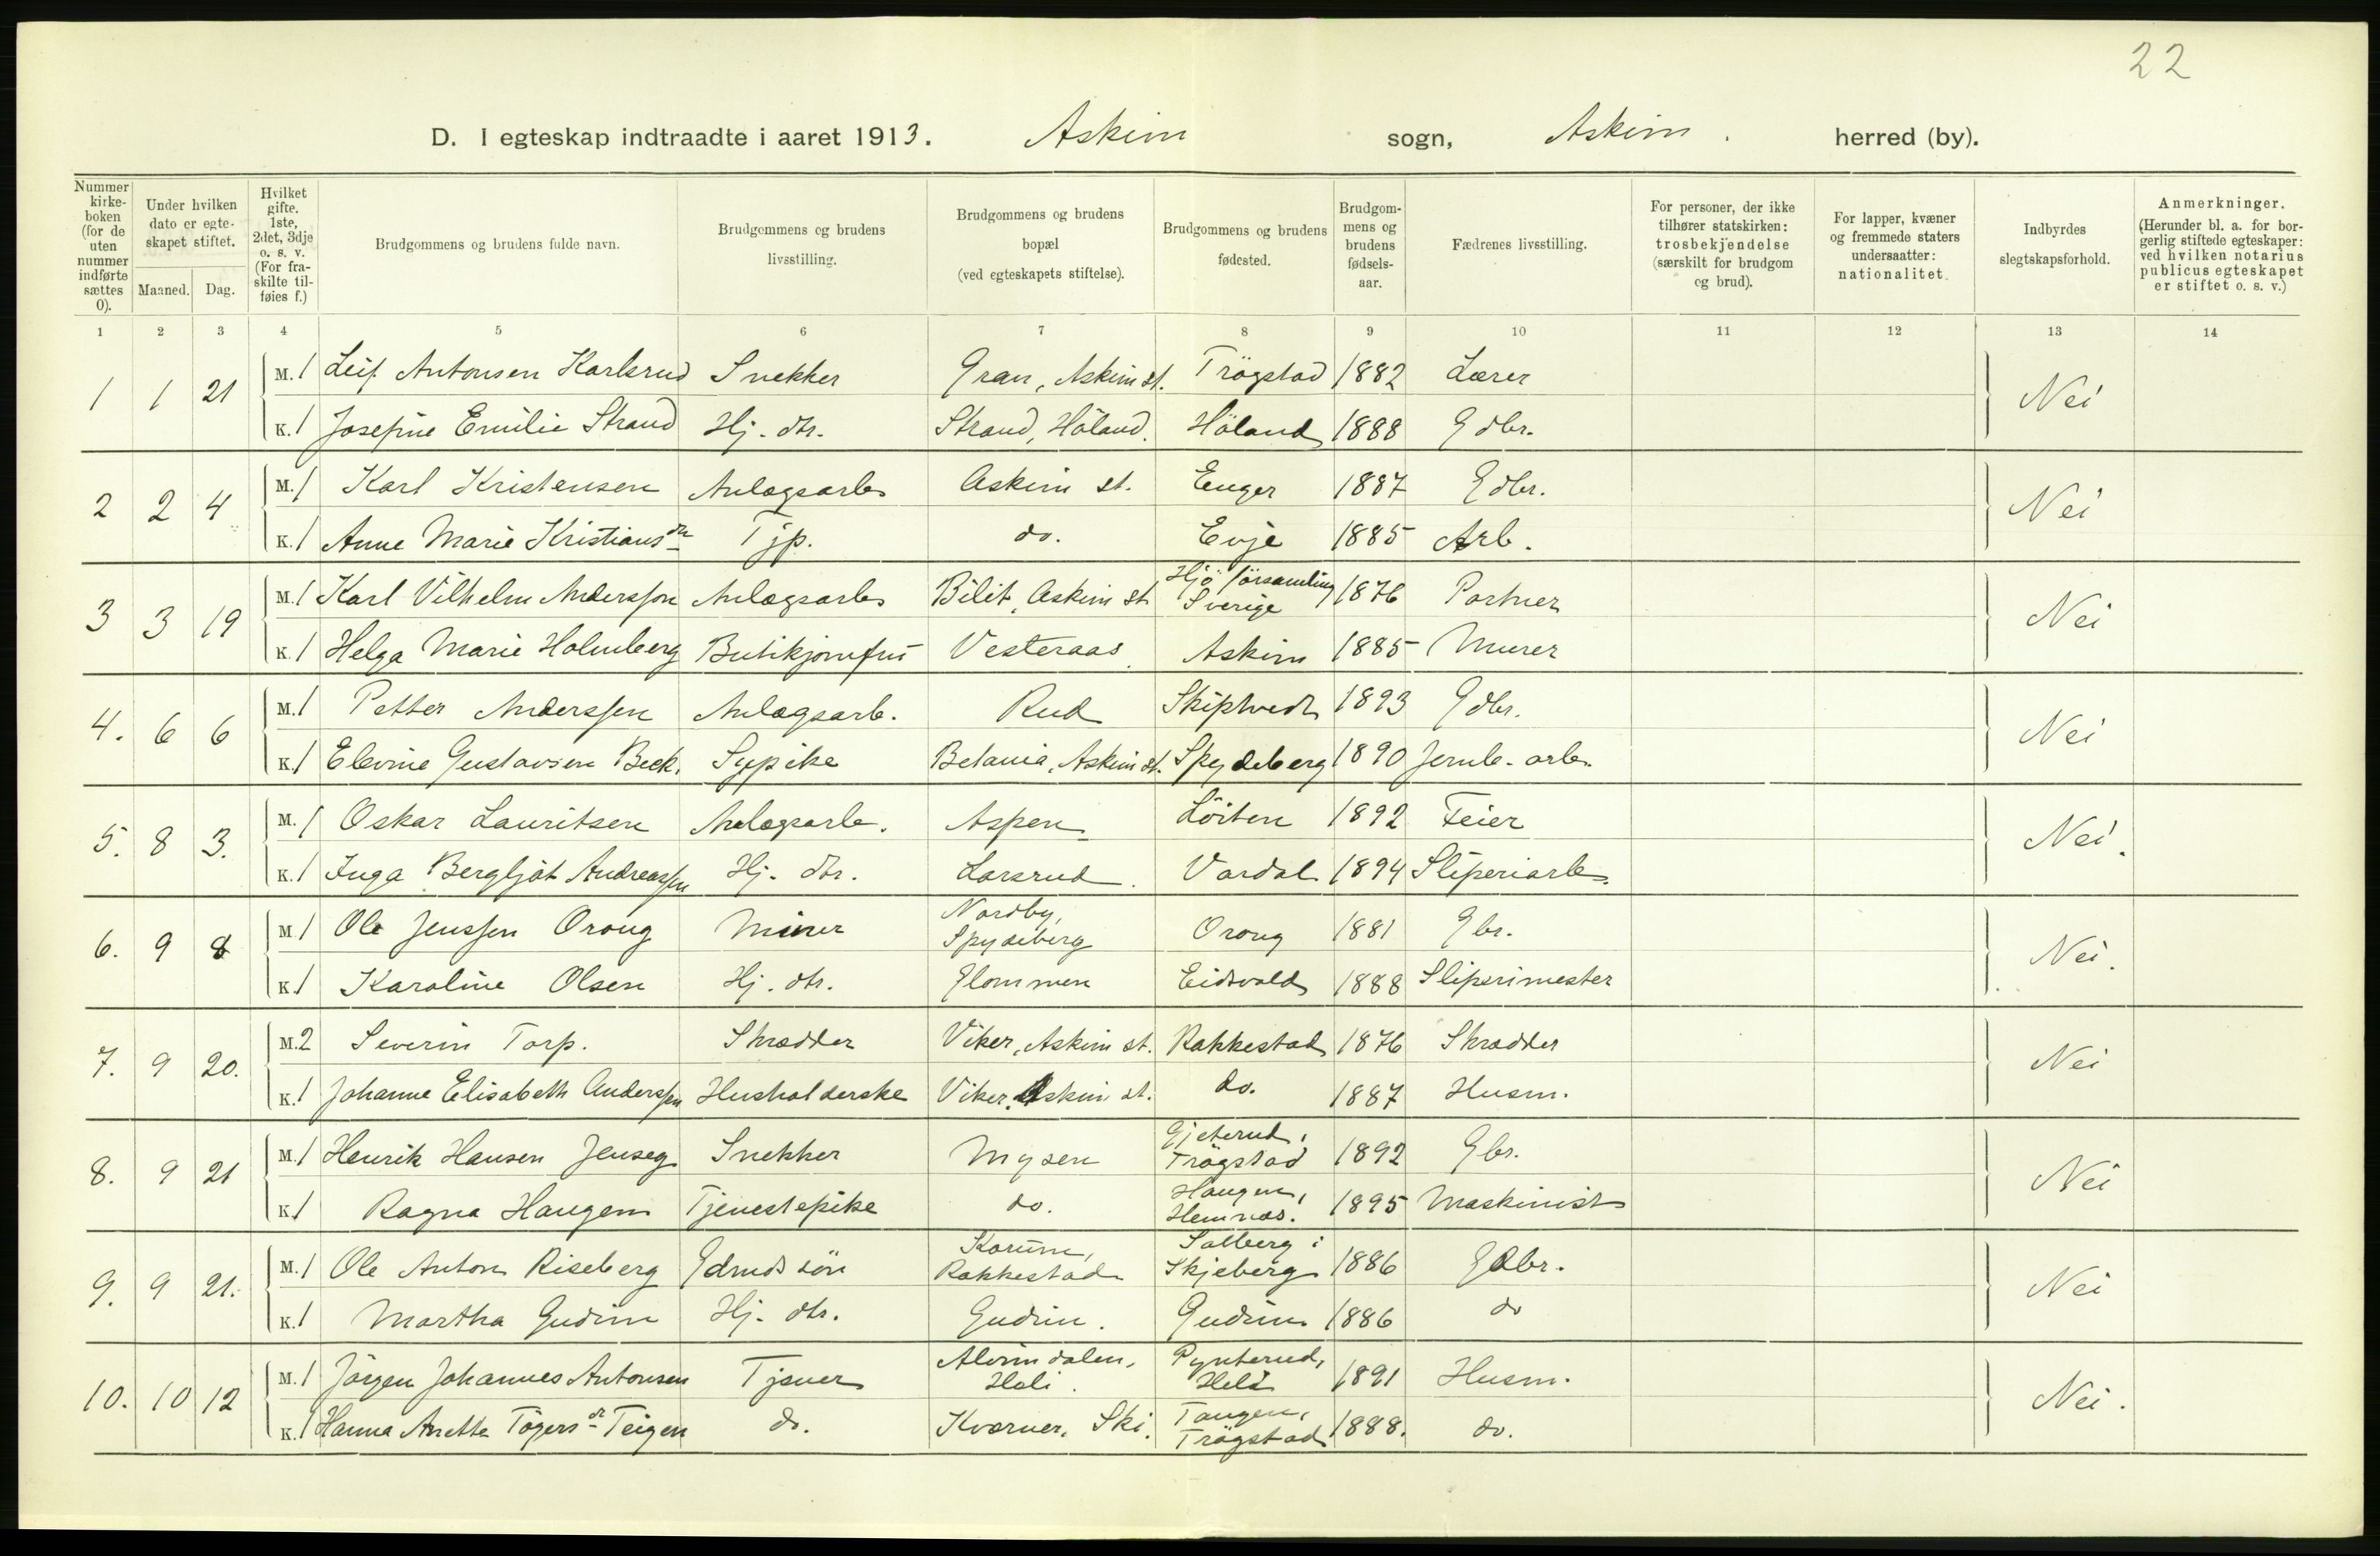 22
D. I egteskap indtraadte i aaret 1913. Askim sogn, Askim. herred (by).
Nummer kirke-boken (for de uten nummer indførte sættes 0).
Under hvilken dato er egte-skapet stiftet.
Maaned. Dag.
Hvilket gifte. 1ste, 2det, 3dje o. s. v. (For fra-skilte til-føies f.)
Brudgommens og brudens fulde navn.
Brudgommens og brudens livsstilling.
Brudgommens og brudens bopæl (ved egteskapets stiftelse).
Brudgommens og brudens fødested.
Brudgom-mens og brudens fødsels-aar.
Fædrenes livsstilling.
For personer, der ikke tilhører statskirken: trosbekjendelse (særskilt for brudgom og brud).
For lapper, kvæner og fremmede staters undersaatter: nationalitet.
Indbyrdes slegtskapsforhold.
Anmerkninger. (Herunder bl. a. for bor-gerlig stiftede egteskaper: ved hvilken notarius publicus egteskapet er stiftet o. s. v.)
1 2 3 4 5 6 7 8 9 10 11 12 13 14
1 1 21 M. 1 Leif Antonsen Karlsrud Snekker Gran, Askim st. Trögstad 1882 Lærer Nei
K. 1 Josefine Emilie Strand Hj. dtr. Strand, Höland. Höland 1888 Gdbr.
2 2 4 M. 1 Karl Kristensen Anlægsarb Askim st. Enger 1887 Gdbr. Nei
K. 1 Anne Marie Kristiansdtr Tjp. do. Evje 1885 Arb.
3 3 19 M. 1 Karl Vilhelm Andersson Anlægsarb Bilit, Askim st Hjö församling Sverige 1876 Portner Nei
K. 1 Helga Marie Holmberg Butikjomfru Vesteraas. Askim 1885 Murer
4. 6 6 M. 1 Petter Anderssen Anlægsarb. Rud Skiptvedt 1893 Gdbr. Nei
K. 1 Elevine Gustavsen Beck. Sypike Betania, Askim st. Spydeberg 1890 Jernb. arb.
5. 8 3. M. 1 Oskar Lauritsen Anlægsarb. Aspen Löiten 1892 Feier Nei.
K. 1 Inga Bergljot Andreassen Hj. dtr. Larsrud. Vardal 1894 Sliperiarb.
6. 9 8 M. 1 Ole Jenssen Oroug Minør Nordby, Spydeberg Oroug 1881 Gbr. Nei.
K. 1 Karoline Olsen Hj. dtr. Glommen Eidsvold 1888 Sliperimester
7. 9 20. M. 2 Severin Torp. Skrædder Viker, Askim st. Rakkestad 1876 Skrædder Nei
K. 1 Johanne Elisabeth Anderssen Husholderske Viker, Askim st. do. 1887 Husm.
8. 9 21 M. 1 Henrik Hansen Jenseg Snekker Mysen Gjeterud, Trögstad 1892 Gbr. Nei
K. 1 Ragna Haugen Tjenestepike do. Haugen, Hemnæs. 1895 Maskinist
9. 9 21. M. 1 Ole Anton Riseberg Gdmds sön Rakkestad Solberg i Skjeberg 1886 Gdbr. Nei
K. 1 Martha Gudim Hj. dtr. Gudim. Gudim 1886 do
10. 10 12 M. 1 Jörgen Johannes Antonsen Tjener Pynterud, 1891 Husm. Nei.
K. 1 Hanna Anette Tögersdr Teigen do. Kværner, Ski. Tangen, Trögstad 1888. do.